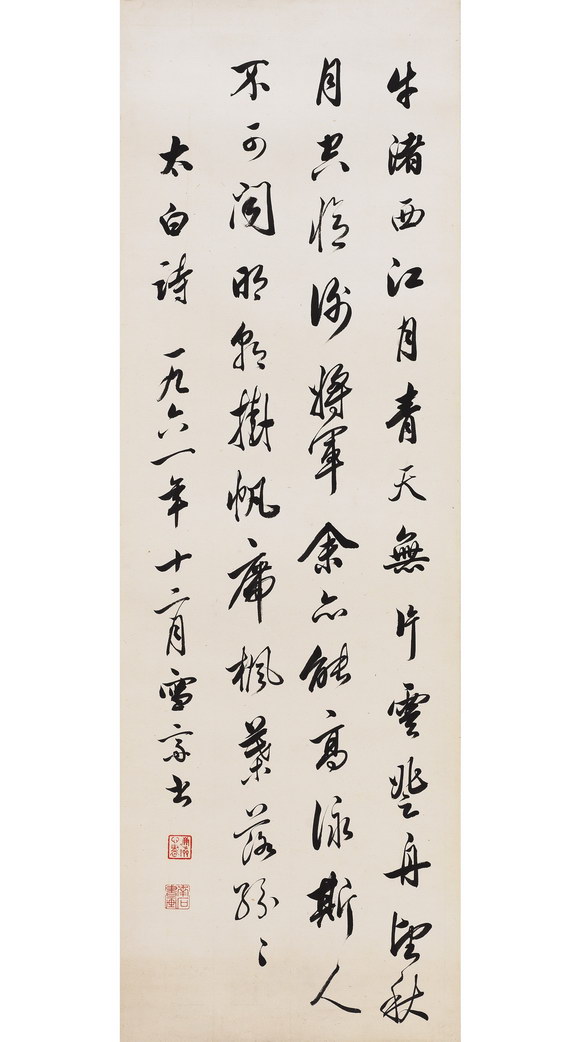 牛渚西江月青天無片雲登舟望秋
月空憶謝將軍余亦能高詠斯人
不可聞明朝掛帆席楓葉落紛〻
太白詩 一九六一年十二月雪 書